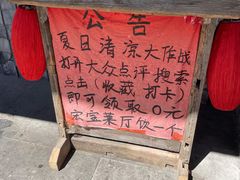 公告
夏日清凉大作战
打开大众点评搜索
点击(收藏 打卡)
即可领取0元
宋宴菜厅饮一个